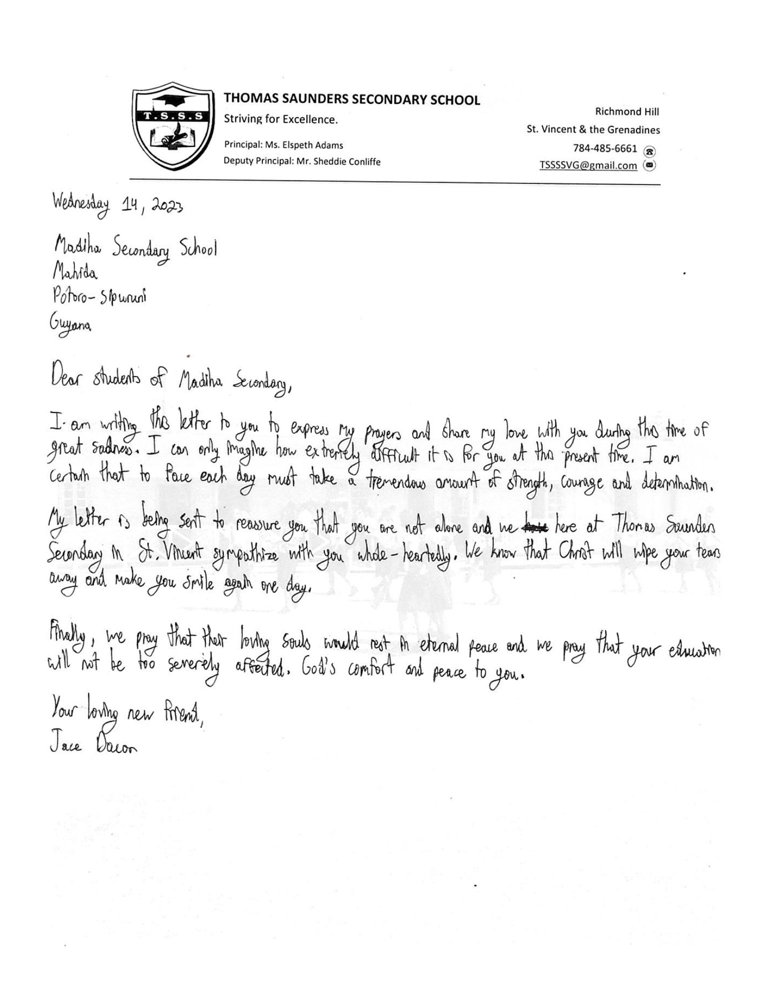 T.S.S.S
THOMAS SAUNDERS SECONDARY SCHOOL
Striving for Excellence.
Principal: Ms. Elspeth Adams
Deputy Principal: Mr. Sheddie Conliffe
Richmond Hill
St. Vincent & the Grenadines
784-485-6661
TSSSSVG@gmail.com
Wednesday 14, 2023
Madiha Secondary School
Mahida
Potoro-Sipuruni
Guyana
Dear students of Madiha Secondary,
I am writing this letter to you to express my prayers and share my love with you during this time of
great sadness. I can only imagine how extremely difficult it is for you at this present time. I am
certain that to face each day must take a tremendous amount of strength, courage and determination.
My letter is being sent to reassure you that you are not alone and we here at Thomas Saunders
Secondary in St. Vincent sympathize with you whole-heartedly. We know that Christ will wipe your tears
away and make you smile again one day.
Finally, we pray that their loving souls would rest in eternal peace and we pray that your education
will not be too severely affected. God's comfort and peace to you.
Your loving new friend,
Jace Dacon